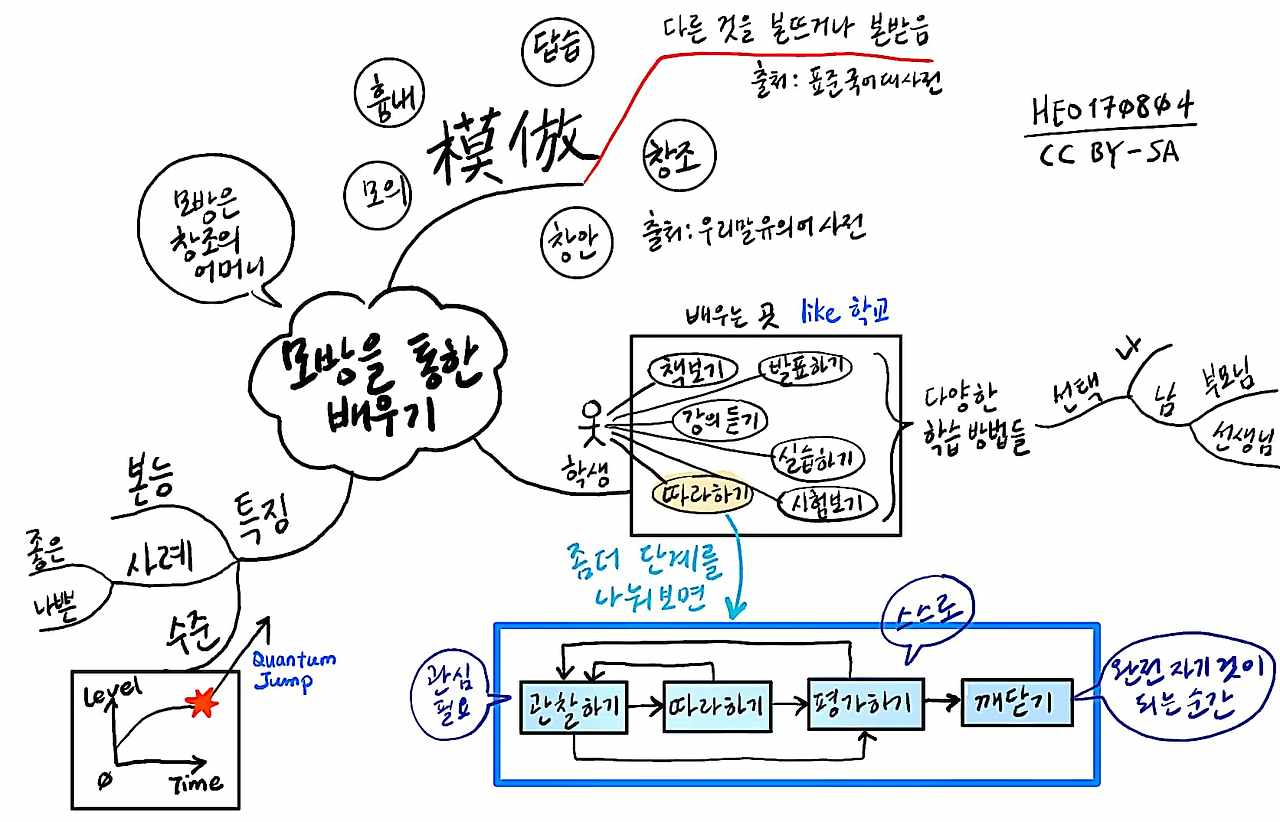 답습
흉내
模倣
모의
창조
창안
다른 것을 본뜨거나 본받음
출처: 표준국어대사전
출처: 우리말유의어사전
HEO170804
CC BY-SA
모방은
창조의
어머니
모방을 통한
배우기
배우는 곳 like 학교
책보기
발표하기
강의 듣기
실습하기
따라하기
시험보기
학생
다양한
학습 방법들
선택
나
남
부모님
선생님
특징
본능
사례
좋은
나쁜
수준
Level
0
Time
Quantum
Jump
좀더 단계를
나눠보면
관심
필요
스스로
관찰하기
따라하기
평가하기
깨닫기
완전 자기 것이
되는 순간